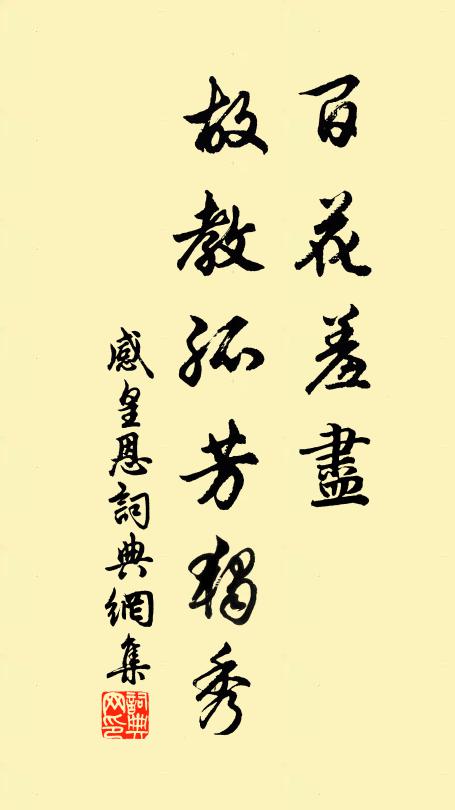 百花羞盡
故教孤芳獨秀
感皇恩詞典網集
詞典
网印